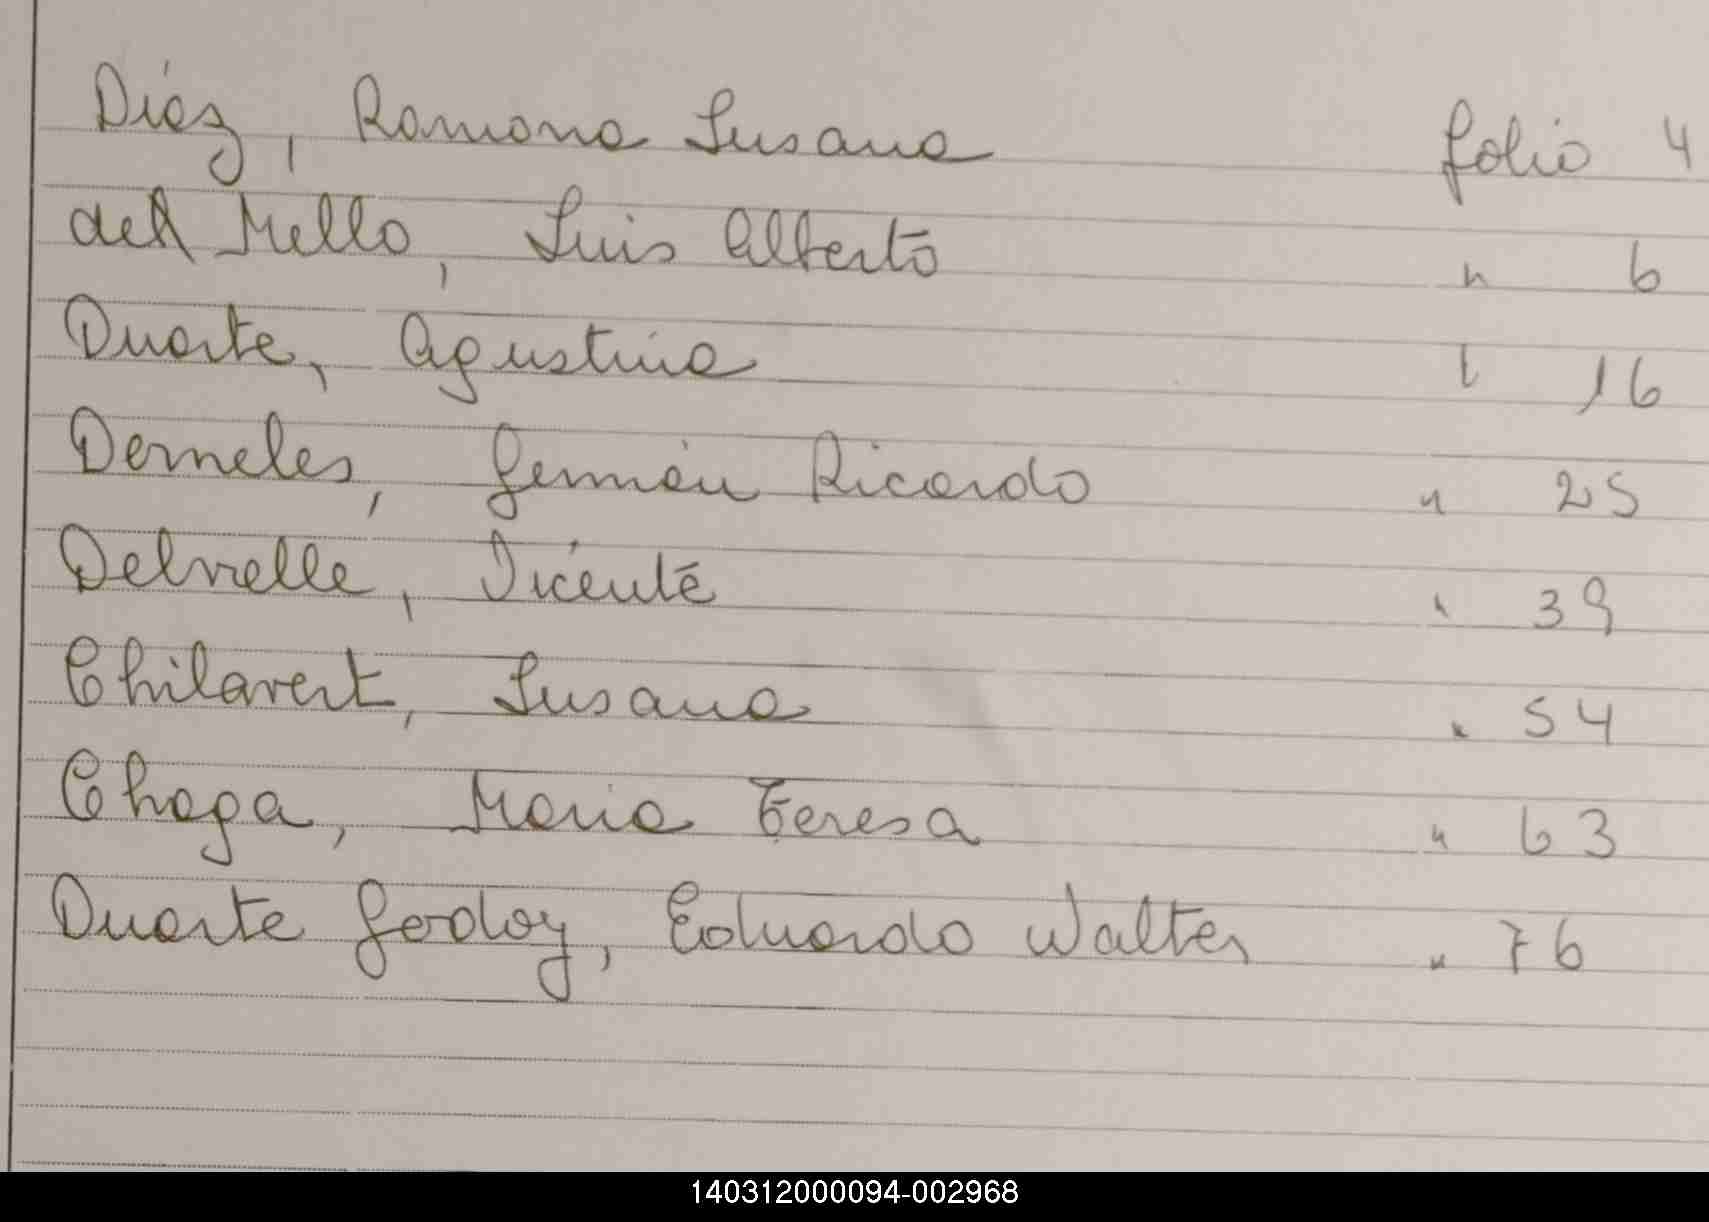 Díaz, Ramona Susana folio 4
del Mello, Luis Alberto " 6
Duarte, Agustina " 16
Dorneles, Germán Ricardo " 25
Delvalle, Vicente " 39
Chilavert, Susana " 54
Chaga, Maria Teresa " 63
Duarte Godoy, Eduardo Walter " 76
140312000094-002968